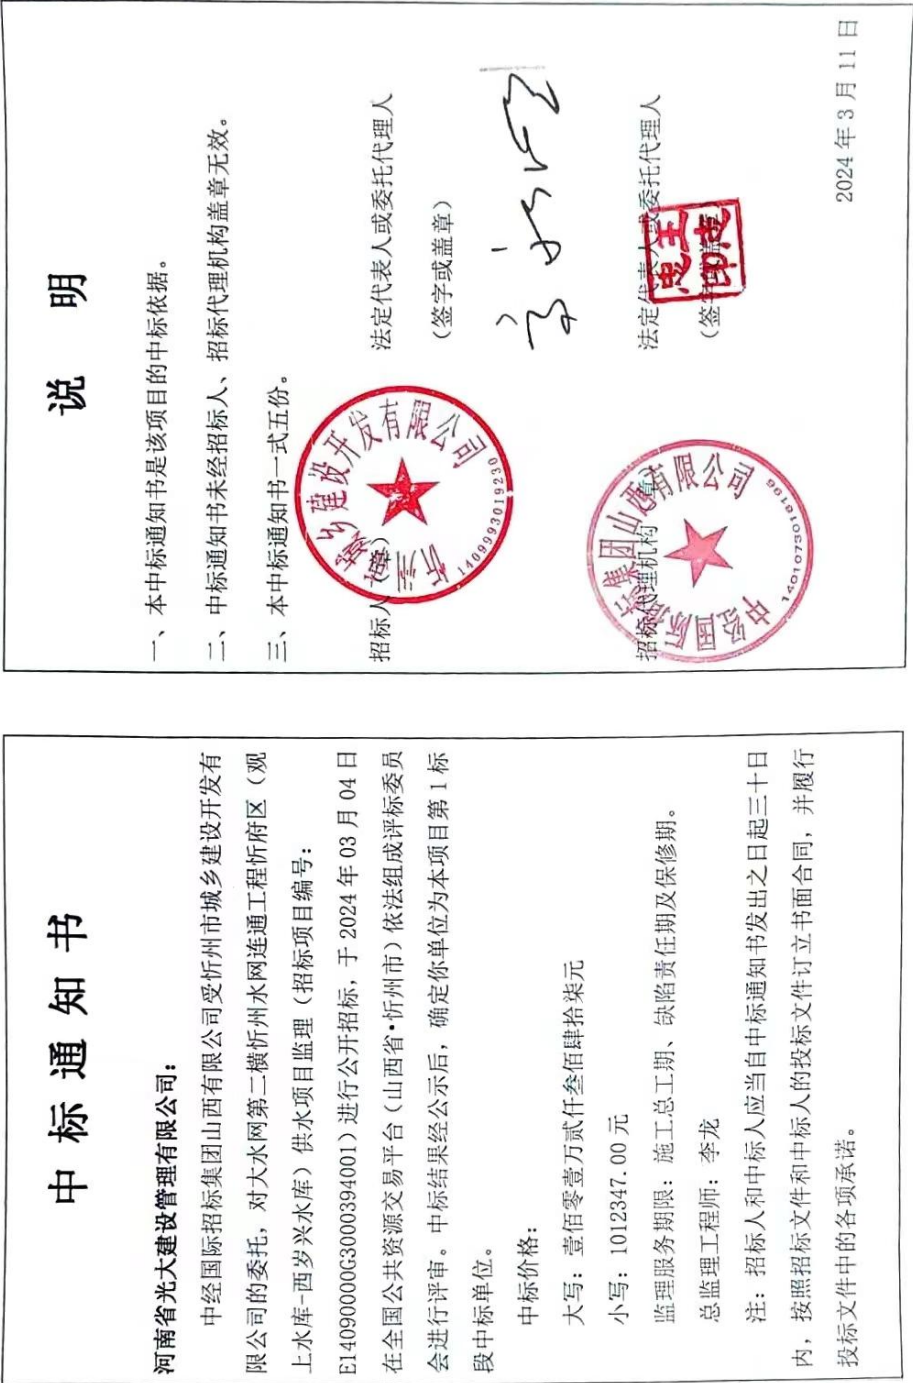 中标通知书
河南省光大建设管理有限公司：
中经国际招标集团山西有限公司受忻州市城乡建设开发有
限公司的委托，对大水网第二横忻州水网连通工程忻府区（观
上水库-西岁兴水库）供水项目监理（招标项目编号：
E14090000G3000394001）进行公开招标，于 2024 年 03 月 04 日
在全国公共资源交易平台（山西省•忻州市）依法组成评标委员
会进行评审。中标结果经公示后，确定你单位为本项目第 1 标
段中标单位。
中标价格：
大写：壹佰零壹万贰仟叁佰肆拾柒元
小写：1012347.00 元
监理服务期限：施工总工期、缺陷责任期及保修期。
总监理工程师：李龙
注：招标人和中标人应当自中标通知书发出之日起三十日
内，按照招标文件和中标人的投标文件订立书面合同，并履行
投标文件中的各项承诺。
说 明
一、本中标通知书是该项目的中标依据。
二、中标通知书未经招标人、招标代理机构盖章无效。
三、本中标通知书一式五份。
招标人（章）
法定代表人或委托代理人
（签字或盖章）
忻州市城乡建设开发有限公司
1409993019230
招标代理机构（章）
法定代表人或委托代理人
（签字或盖章）
中经国际招标集团山西有限公司
王志忠印
2024 年 3 月 11 日